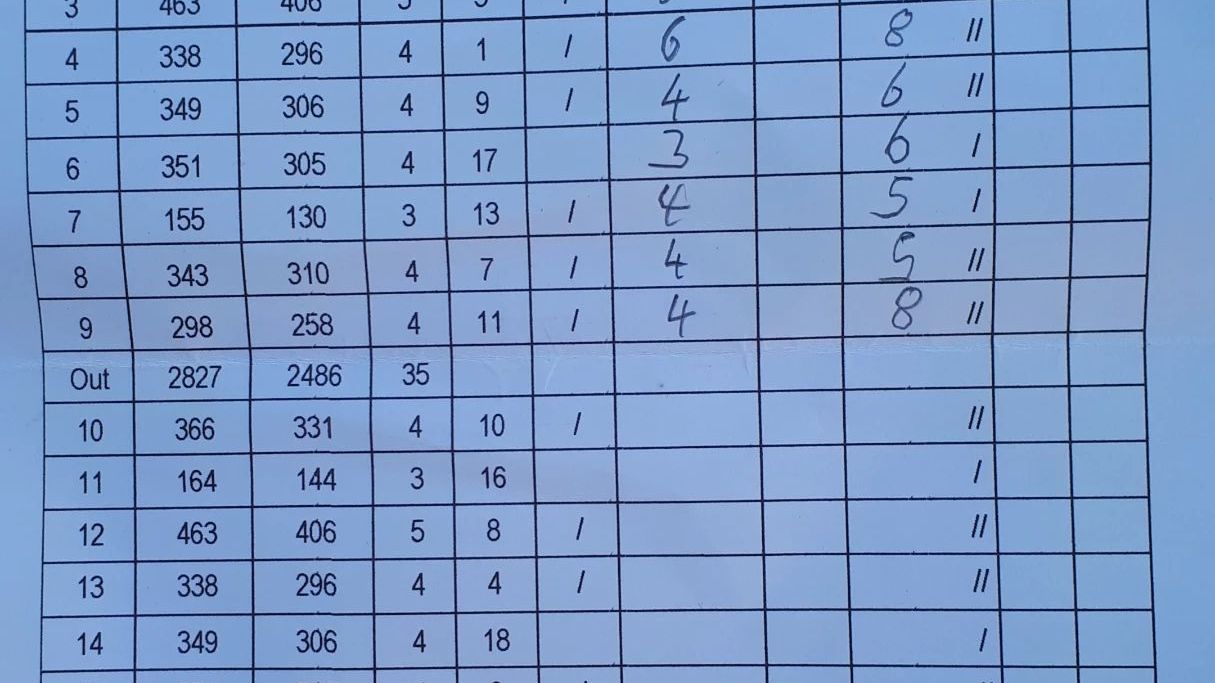 3 463 406 5
4 338 296 4 1 / 6 8 //
5 349 306 4 9 / 4 6 //
6 351 305 4 17 3 6 /
7 155 130 3 13 / 4 5 /
8 343 310 4 7 / 4 5 //
9 298 258 4 11 / 4 8 //
Out 2827 2486 35
10 366 331 4 10 / //
11 164 144 3 16 /
12 463 406 5 8 / //
13 338 296 4 4 / //
14 349 306 4 18 /